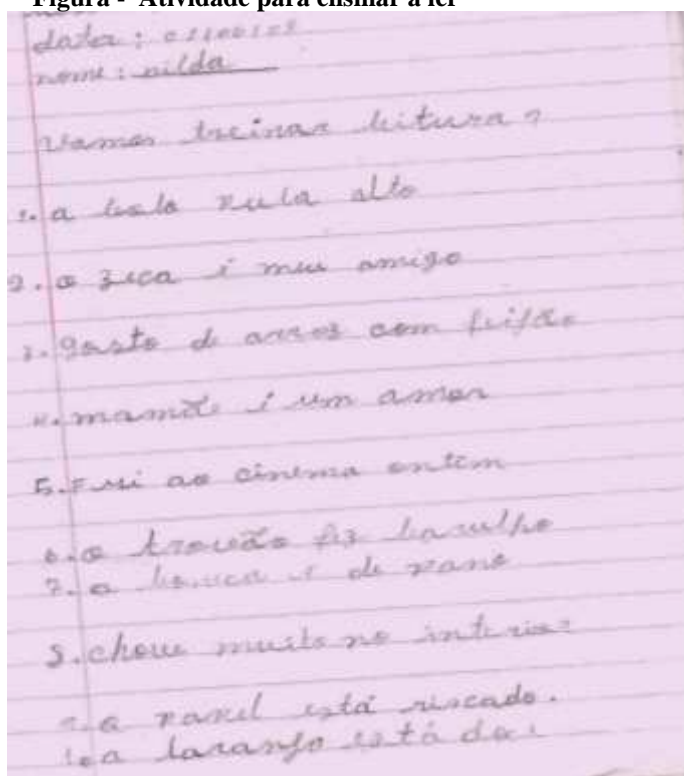 Figura - Atividade para ensinar a ler
data:
nome: nilda
Vamos treinar leitura?
1. a bola pula alto
2. o zeca é meu amigo
3. gosto de arroz com feijão
4. mamãe é um amor
5. Fui ao cinema ontem
6. o trovão fez barulho
7. a boneca é de pano
8. chove muito no interior
9. a papel está riscado.
10. a laranja está